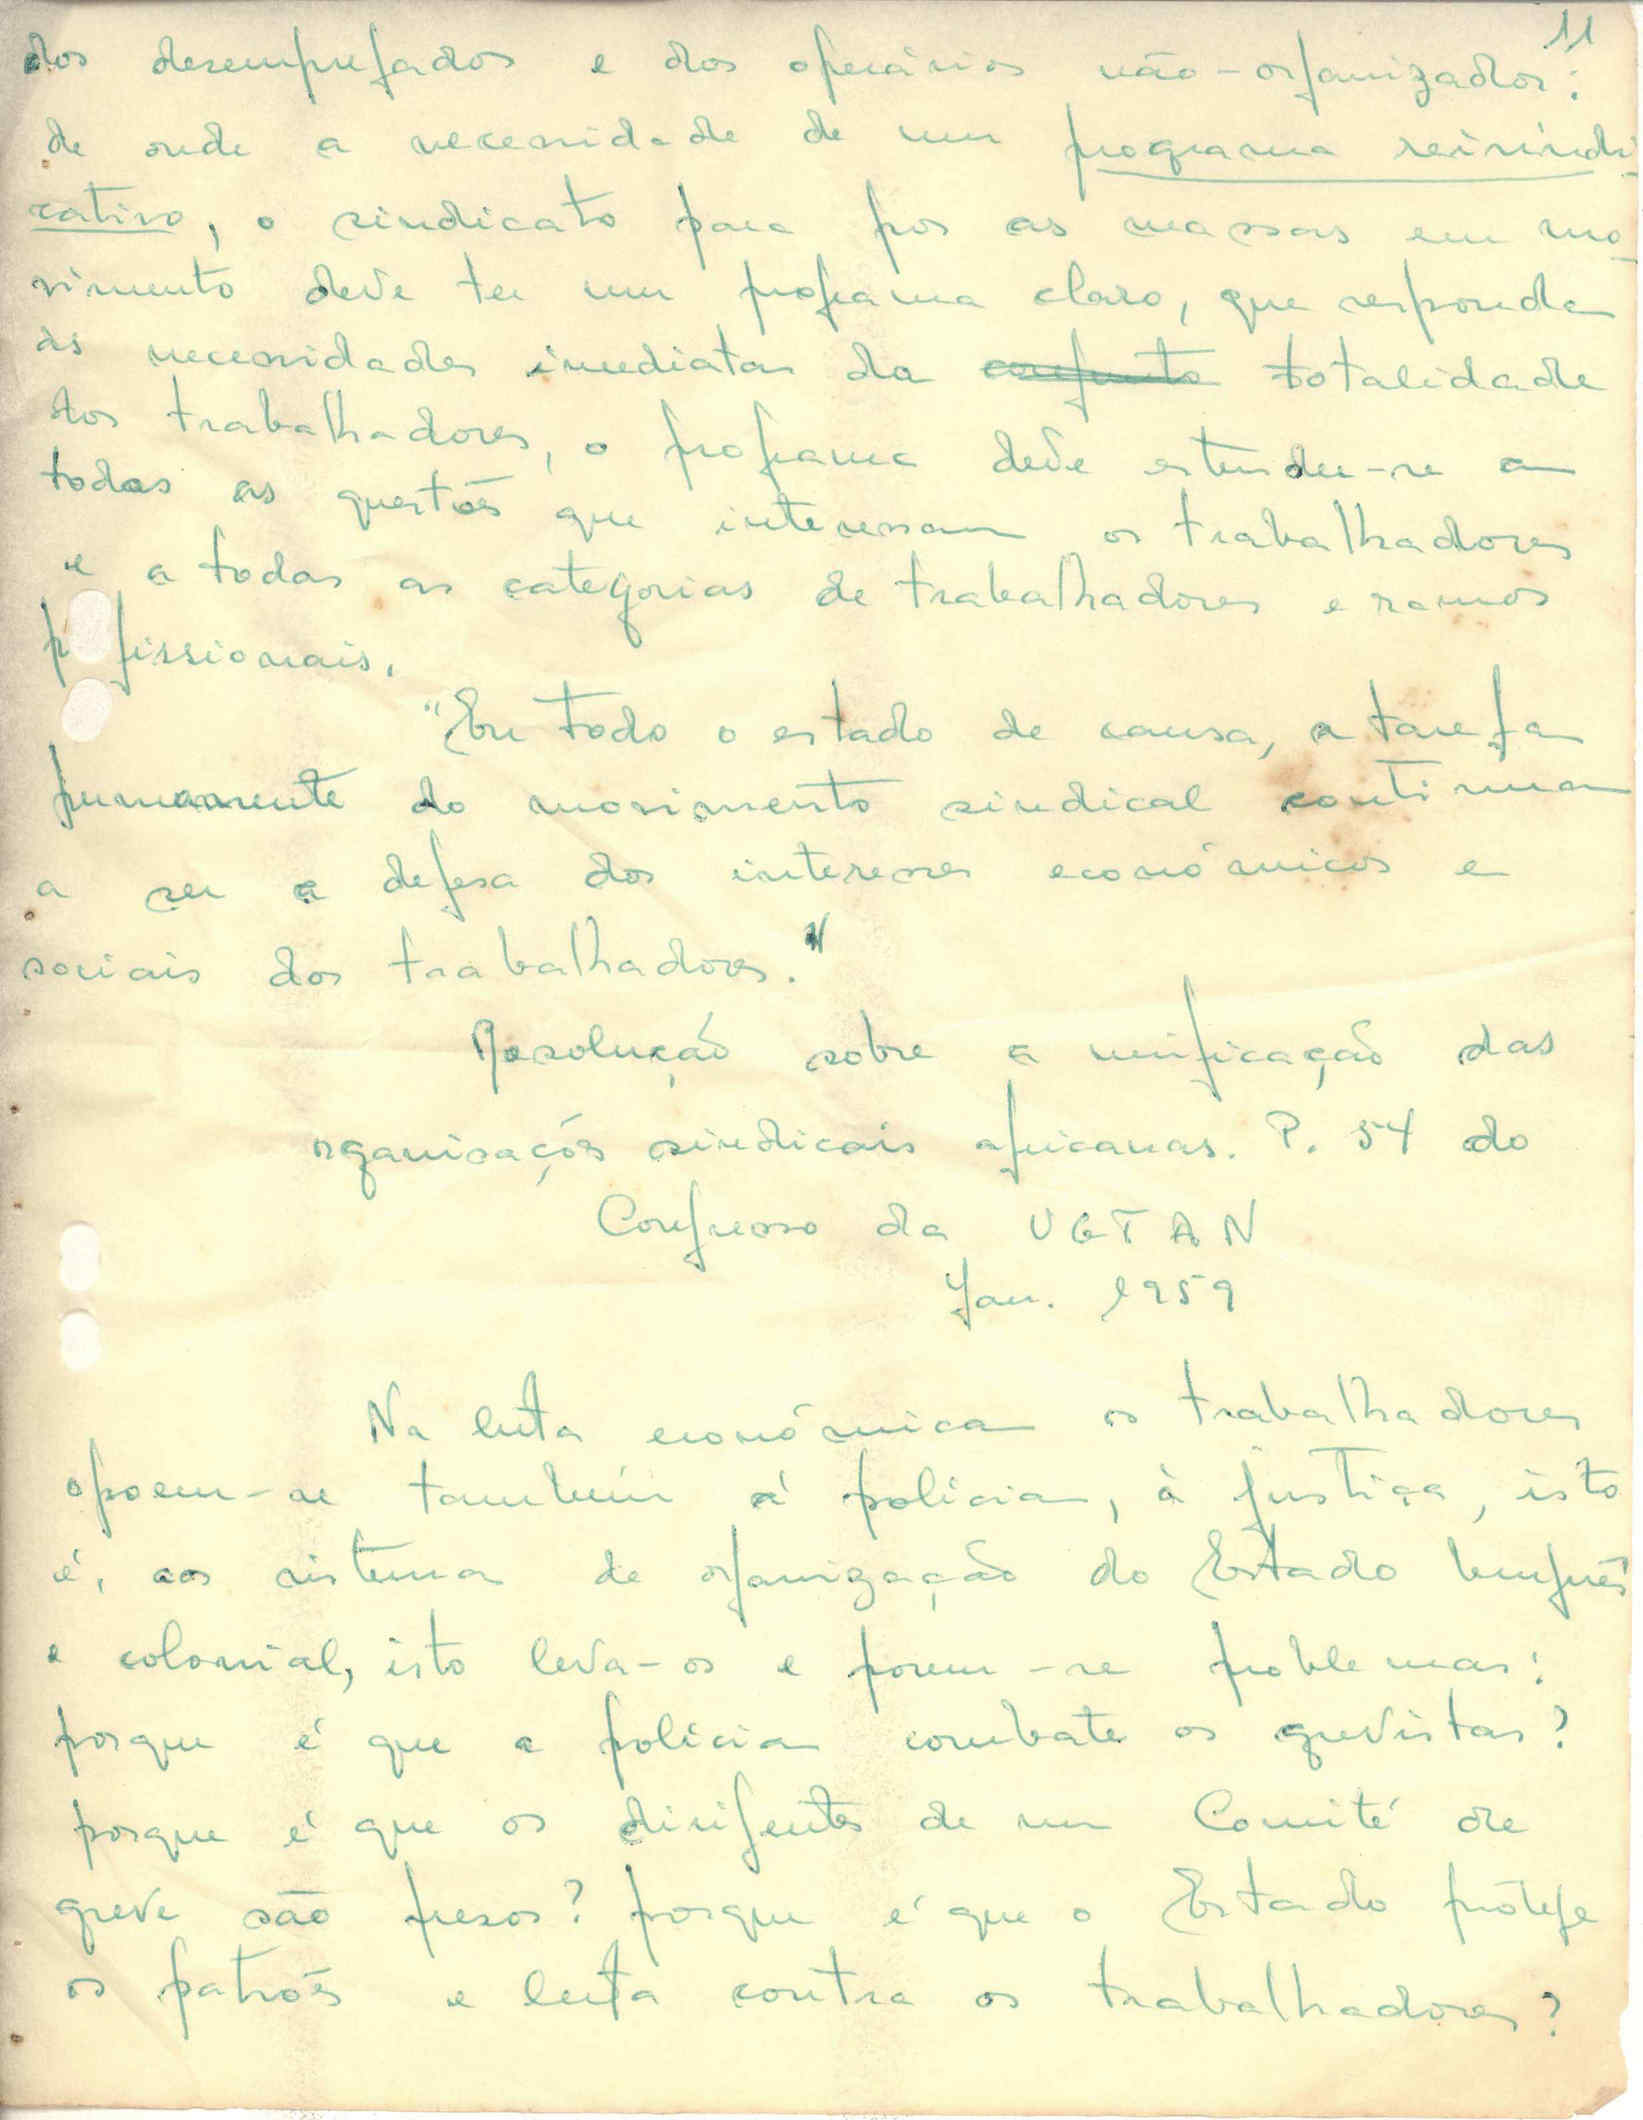 11
dos desempregados e dos operários não-organizados:
de onde a necessidade de um programa reivindi-
cativo, o sindicato para por as massas em mo-
vimento deve ter um programa claro, que responda
às necessidades imediatas da conjunto totalidade
dos trabalhadores, o programa deve estender-se a
todas as questões que interessam os trabalhadores
e a todas as categorias de trabalhadores e ramos
p fissionais.
"Em todo o estado de causa, a tarefa
permanente do movimento sindical continua
a ser a defesa dos interesses económicos e
sociais dos trabalhadores."
Resolução sobre a unificação das
organizações sindicais africanas. P. 54 do
Congresso da UGTAN
Jan. 1959
Na luta económica os trabalhadores
opoem-se também á polícia, à justiça, isto
é, aos sistema de organização do Estado burguês
e colonial, isto leva-os e porem-se problemas:
porque é que a polícia combate os grevistas?
porque é que os dirigentes de um Comité de
greve são presos? porque é que o Estado protege
os patrões e luta contra os trabalhadores?